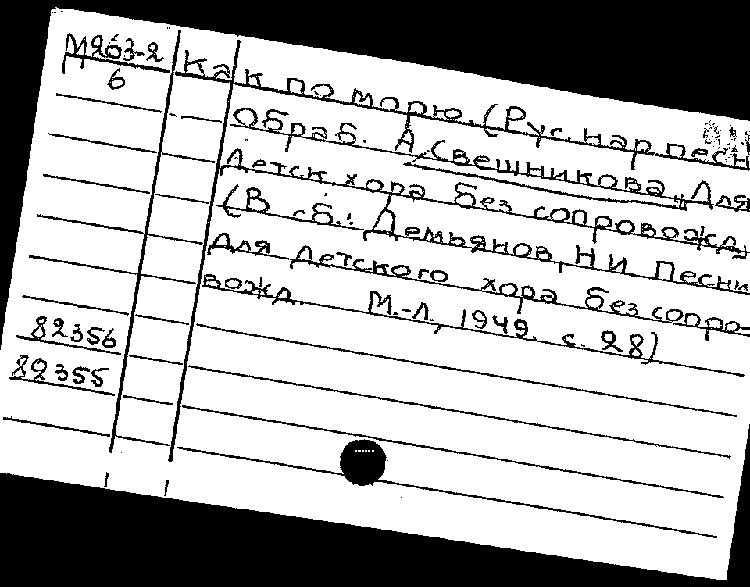 М263-2
6
Как по морю. (Рус. нар. песн
Обраб. А. Свешникова. Для
детск. хора без сопровожд.
(В сб.: Демьянов, Н.И. Песни
для детского хора без сопро-
вожд. М.-Л., 1949. с. 28)
82356
82355